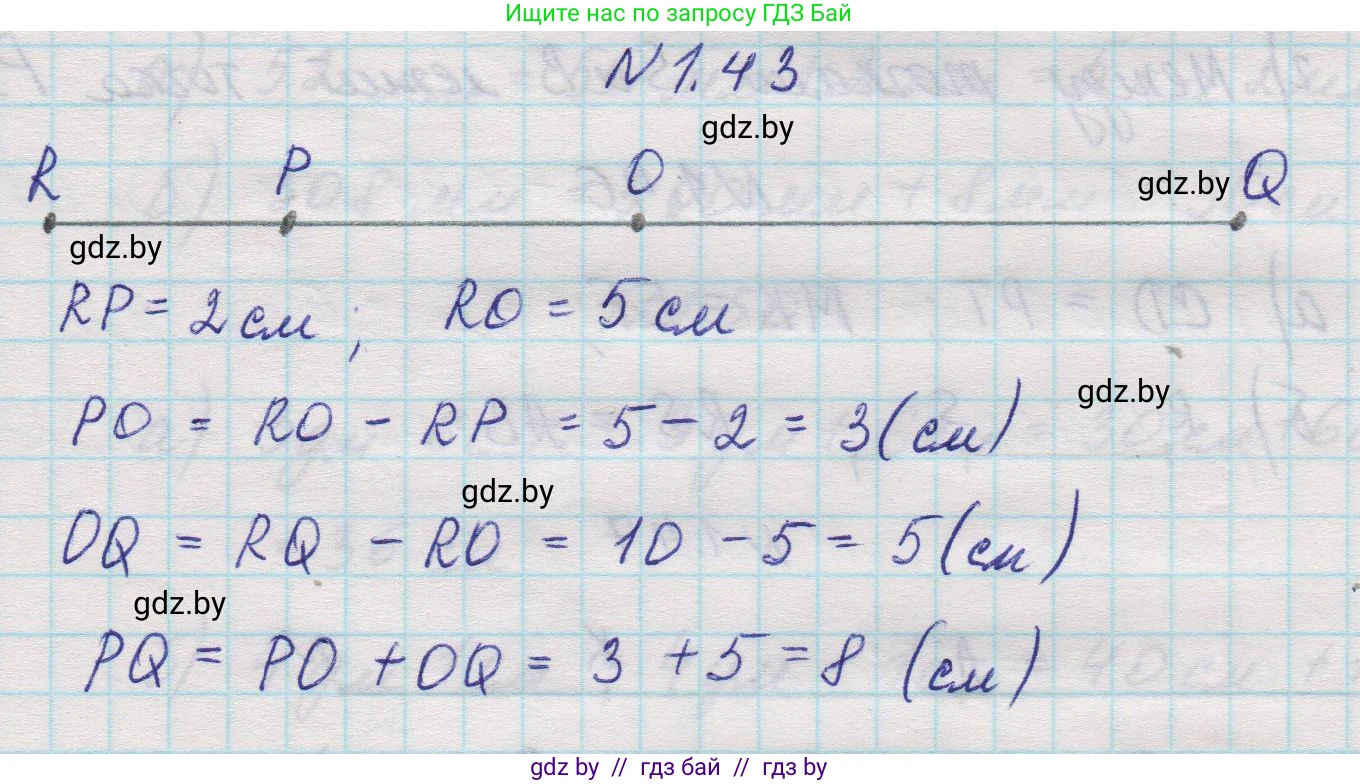 Ищите нас по запросу ГДЗ Бай
N 1.43
gdz.by
R P O Q
gdz.by
gdz.by
RP = 2 см ; RO = 5 см
gdz.by
PO = RO - RP = 5 - 2 = 3 (см)
gdz.by
OQ = RQ - RO = 10 - 5 = 5 (см)
gdz.by
PQ = PO + OQ = 3 + 5 = 8 (см)
gdz by // гдз бай // гдз by